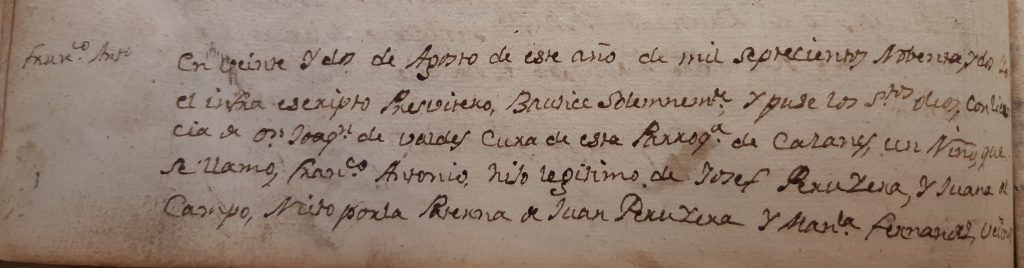 Fran.co Anto
En veinte Y dos de Agosto de este año de mil septecientos Nobenta, y dos
el infra escripto Presvitero, Bautice Solemnem.te, Y puse los S.tos oleos, con licen
cia de Dn Joaq.n de Valdes Cura de esta Parroq.a de Calanes, un Niño, que
se llamo, Fran.co Antonio, hijo legitimo de Josef Peruxera, Y Juana del
Campo, Nieto por la Paterna de Juan Peruxera Y Man.la Fernandez,